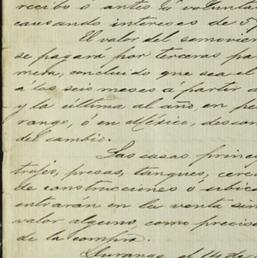 recibo ó antes à voluntad
causando intereses de 5
El valor del semovien
se pagará por terceras pa
mera, concluido que sea el
a los seis meses á partir d
y la última al año, en pe
rango, ó en México, descon
del cambio.
Las casas princi
trojes, presas, tanques, cerc
de construcciones ó ubica
entrarán en la venta sin
valor alguno, como precis
de la compra.
Durango, el 14 de